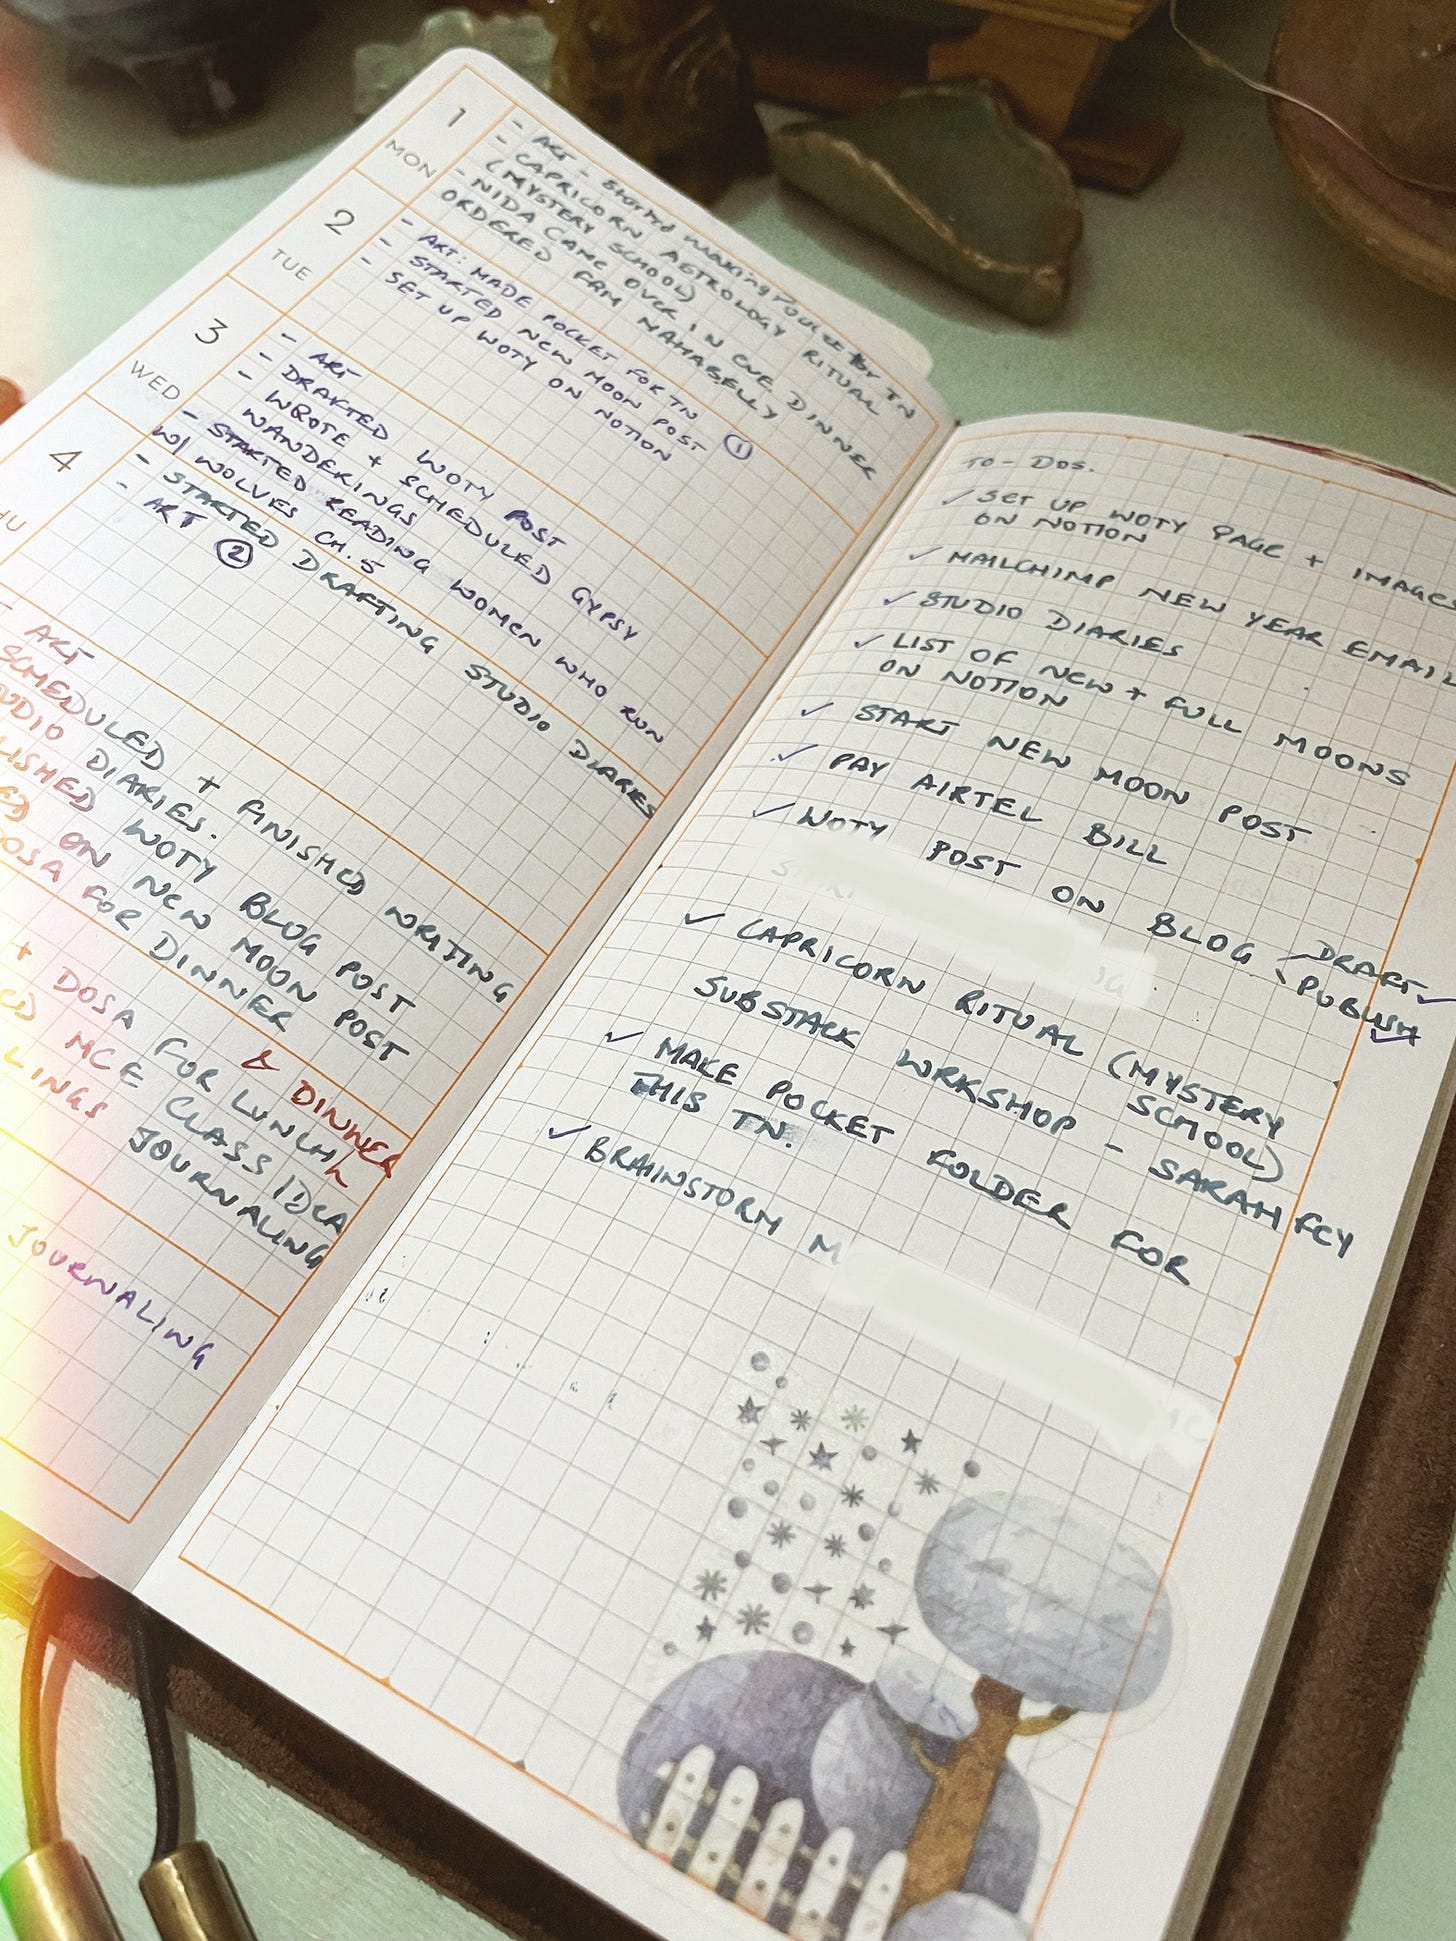 1
MON
- ART - Started making Pocket for TN
- CAPRICORN ASTROLOGY RITUAL
(MYSTERY SCHOOL)
- NIDA CAME OVER IN EVE. DINNER
ORDERED FRM MAHABELLY
2
TUE
- ART: MADE POCKET FOR TN
- STARTED NEW MOON POST ①
- SET UP WOTY ON NOTION
3
WED
- ART
- DRAFTED WOTY POST
- WROTE + SCHEDULED GYPSY
WANDERINGS
- STARTED READING WOMEN WHO RUN
W/ WOLVES CH. 5
4
HU
- STARTED DRAFTING STUDIO DIARIES
- ART ②
- ART
SCHEDULED + FINISHED WRITING
UDIO DIARIES.
LISHED WOTY BLOG POST
ED ON NEW MOON POST
DOSA FOR DINNER
& DINNER
+ DOSA FOR LUNCH
ED MCE CLASS IDEA
LINGS JOURNALING
JOURNALING
TO-DOS.
✓ SET UP WOTY PAGE + IMAGES
ON NOTION
✓ MAILCHIMP NEW YEAR EMAIL
✓ STUDIO DIARIES
✓ LIST OF NEW + FULL MOONS
ON NOTION
✓ START NEW MOON POST
✓ PAY AIRTEL BILL
✓ WOTY POST ON BLOG DRAFT ✓
PUBLISH ✓
✓ CAPRICORN RITUAL (MYSTERY
SCHOOL)
SUBSTACK WRKSHOP - SARAH FCY
✓ MAKE POCKET FOLDER FOR
THIS TN.
✓ BRAINSTORM M